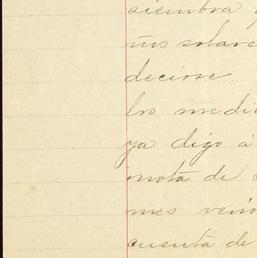 siembra y
ños solare
decirse.
los medi
ya digo á
nota de
mes veni
cuenta de